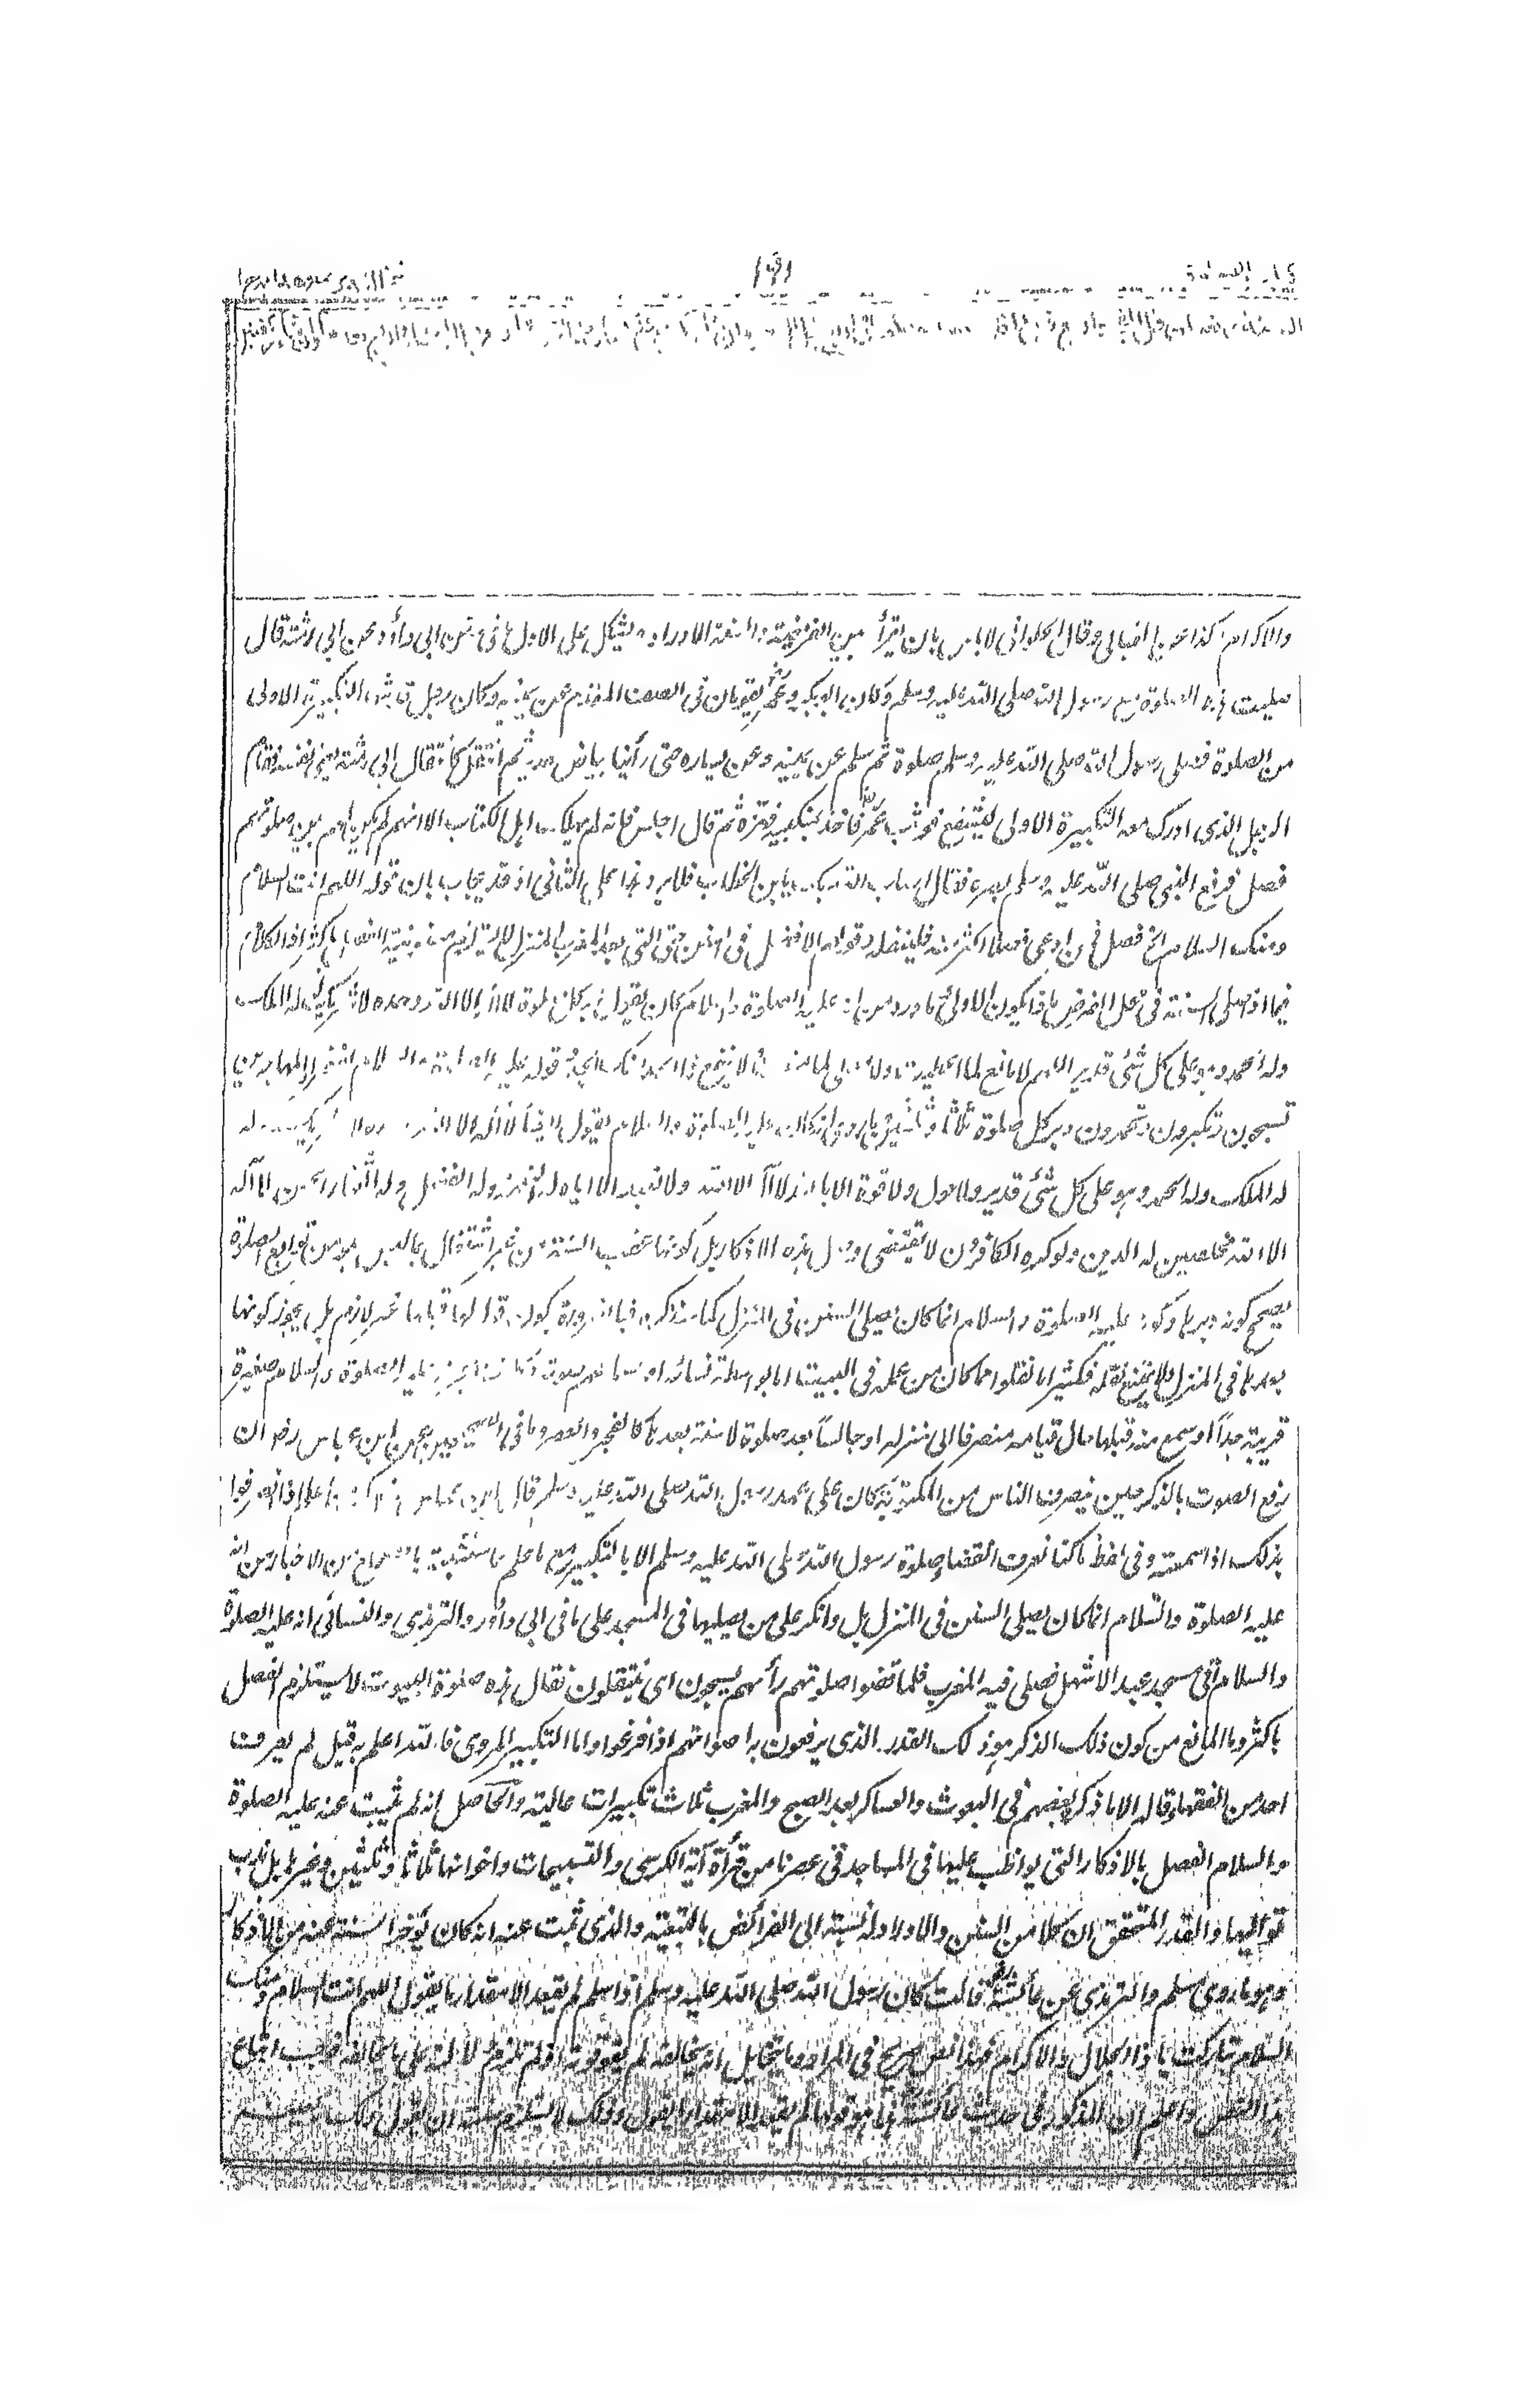 والاكرام كذا عن البقالى وقال الحلوانى لاباس بان يقرأ بين الفريضة والسنة الاوراد ويشكل على الاول ما فى سنن ابى داؤد عن ابى رمثة قال
صليت هذه الصلوة مع رسول الله صلى الله عليه وسلم وكان ابوبكر وعمر يقومان فى الصف المقدم عن يمينه وكان رجل قد شهد التكبيرة الاولى
من الصلوة فصلى رسول الله صلى الله عليه وسلم صلوة ثم سلم عن يمينه وعن يساره حتى رأينا بياض خديه ثم انفتل كانفتال ابى رمثة يعنى نفسه فقام
الرجل الذى ادرك معه التكبيرة الاولى ليشفع فوثب عمر فاخذ بمنكبيه فهزه ثم قال اجلس فانه لم يهلك اهل الكتاب الا انهم لم يكن لهم بين صلوتهم
فصل فرفع النبى صلى الله عليه وسلم بصره فقال اصاب الله بك يا ابن الخطاب فلايرد هذا على الثانى اذ قد يجاب بان قوله اللهم انت السلام
ومنك السلام الخ فصل فمن ادعى فصلا اكثر منه فلينقله وقولهم الافضل فى السنن حتى التى بعد المغرب المنزل لا يستلزم مسنونية الفصل باكثر اذ الكلام
فيما اذا صلى السنة فى محل الفرض ماذا يكون الاولى ما ورد من انه عليه الصلوة والسلام كان يقول فى دبر كل صلوة لا اله الا الله وحده لا شريك له له الملك
وله الحمد وهو على كل شئ قدير اللهم لا مانع لما اعطيت ولا معطى لما منعت ولا ينفع ذا الجد منك الجد وقوله عليه الصلوة والسلام لفقراء المهاجرين
تسبحون وتكبرون وتحمدون دبر كل صلوة ثلاثا وثلثين وما روى انه كان عليه الصلوة والسلام يقول ايضا لا اله الا الله وحده لا شريك له
له الملك وله الحمد وهو على كل شئ قدير ولا حول ولا قوة الا بالله لا اله الا الله ولا نعبد الا اياه له النعمة وله الفضل وله الثناء الحسن لا اله
الا الله مخلصين له الدين ولو كره الكافرون لا يقتضى وصل هذه الاذكار بل كونها عقيب السنة من غير اشتغال بما ليس هو من توابع الصلوة
يصح كونه دبرها وكونه عليه الصلوة والسلام انما كان يصلى السنن فى المنزل كما سنذكره فبالضرورة كون قولها قبلها غير لازم بل يجوز كونها
بعدها فى المنزل ولا يمتنع نقله فكثيرا ما نقلوا مما كان من عمله فى البيت اما بواسطة نسائه او سماعهم صوته وكانت حجرته عليه الصلوة والسلام صغيرة
قريبة جداً او سمع منه قبلها حال قيامه منصرفا الى منزله او جالساً بعد صلوة لا سنة بعدها كالفجر والعصر وما فى الصحيحين عن ابن عباس رضى ان
رفع الصوت بالذكر حين ينصرف الناس من المكتوبة كان على عهد رسول الله صلى الله عليه وسلم قال ابن عباس كنت اعلم اذا انصرفوا
بذلك اذا سمعته وفى لفظ ما كنا نعرف انقضاء صلوة رسول الله صلى الله عليه وسلم الا بالتكبير مع ما علم مما سنثبته بالصحاح من الاخبار من انه
عليه الصلوة والسلام انما كان يصلى السنن فى المنزل بل وانكر على من يصليها فى المسجد على ما فى ابى داؤد والترمذى والنسائى انه عليه الصلوة
والسلام اتى مسجد عبد الاشهل فصلى فيه المغرب فلما قضوا صلوتهم رأهم يسبحون اى يتنفلون فقال هذه صلوة البيوت لا يستلزم الفصل
باكثر وما المانع من كون ذلك الذكر هو ذلك القدر الذى يرفعون به اصواتهم اذا فرغوا واما التكبير المروى فالله اعلم به قيل لم يعرف
احد من الفقهاء قال الا ما ذكره بعضهم فى البعوث والعساكر بعد الصبح والمغرب ثلاث تكبيرات عالية والحاصل انه لم يثبت عنه عليه الصلوة
والسلام الفصل بالاذكار التى يواظب عليها فى المساجد فى عصرنا من قرأة آية الكرسى والتسبيحات واخواتها ثلاثا وثلثين وغيرها بل ندب
هو اليها والقدر المتحقق ان كلا من السنن والاوراد له نسبة الى الفرائض بالتبعية والذى ثبت عنه انه كان يؤخر السنة عنه من الاذكار
وهو ما روى مسلم والترمذى عن عائشة قالت كان رسول الله صلى الله عليه وسلم اذا سلم لم يقعد الا مقدار ما يقول اللهم انت السلام ومنك
السلام تباركت يا ذا الجلال والاكرام فهذا نص صريح فى المراد وما يتخايل انه يخالفه لم يقو قوته او لم تلزم دلالته على ما يخالفه فوجب اتباع
هذا النص واعلم ان المذكور فى حديث عائشة هذا هو قولها لم يقعد الا مقدار ما يقول وذلك لا يستلزم سنية ان يقول ذلك